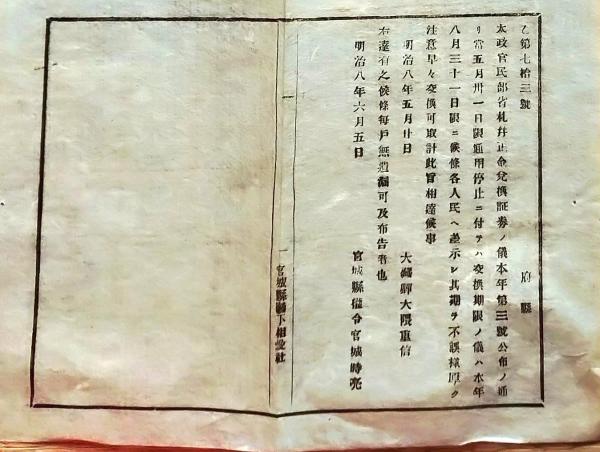 乙第七拾三號
府縣
太政官民部省札幷正金兌換証券ノ儀本年第三號公布ノ通
リ當五月卅一日限通用停止ニ付テハ交換期限ノ儀ハ本年
八月三十一日限ニ候條各人民ヘ差示シ其期ヲ不誤様厚ク
注意早々交換可取計此旨相達候事
明治八年五月廿日
大藏卿大隈重信
右達有之候條毎戶無遺漏可及布告者也
明治八年六月五日
宮城縣權令宮城時亮
一 宮城縣縣下相設社